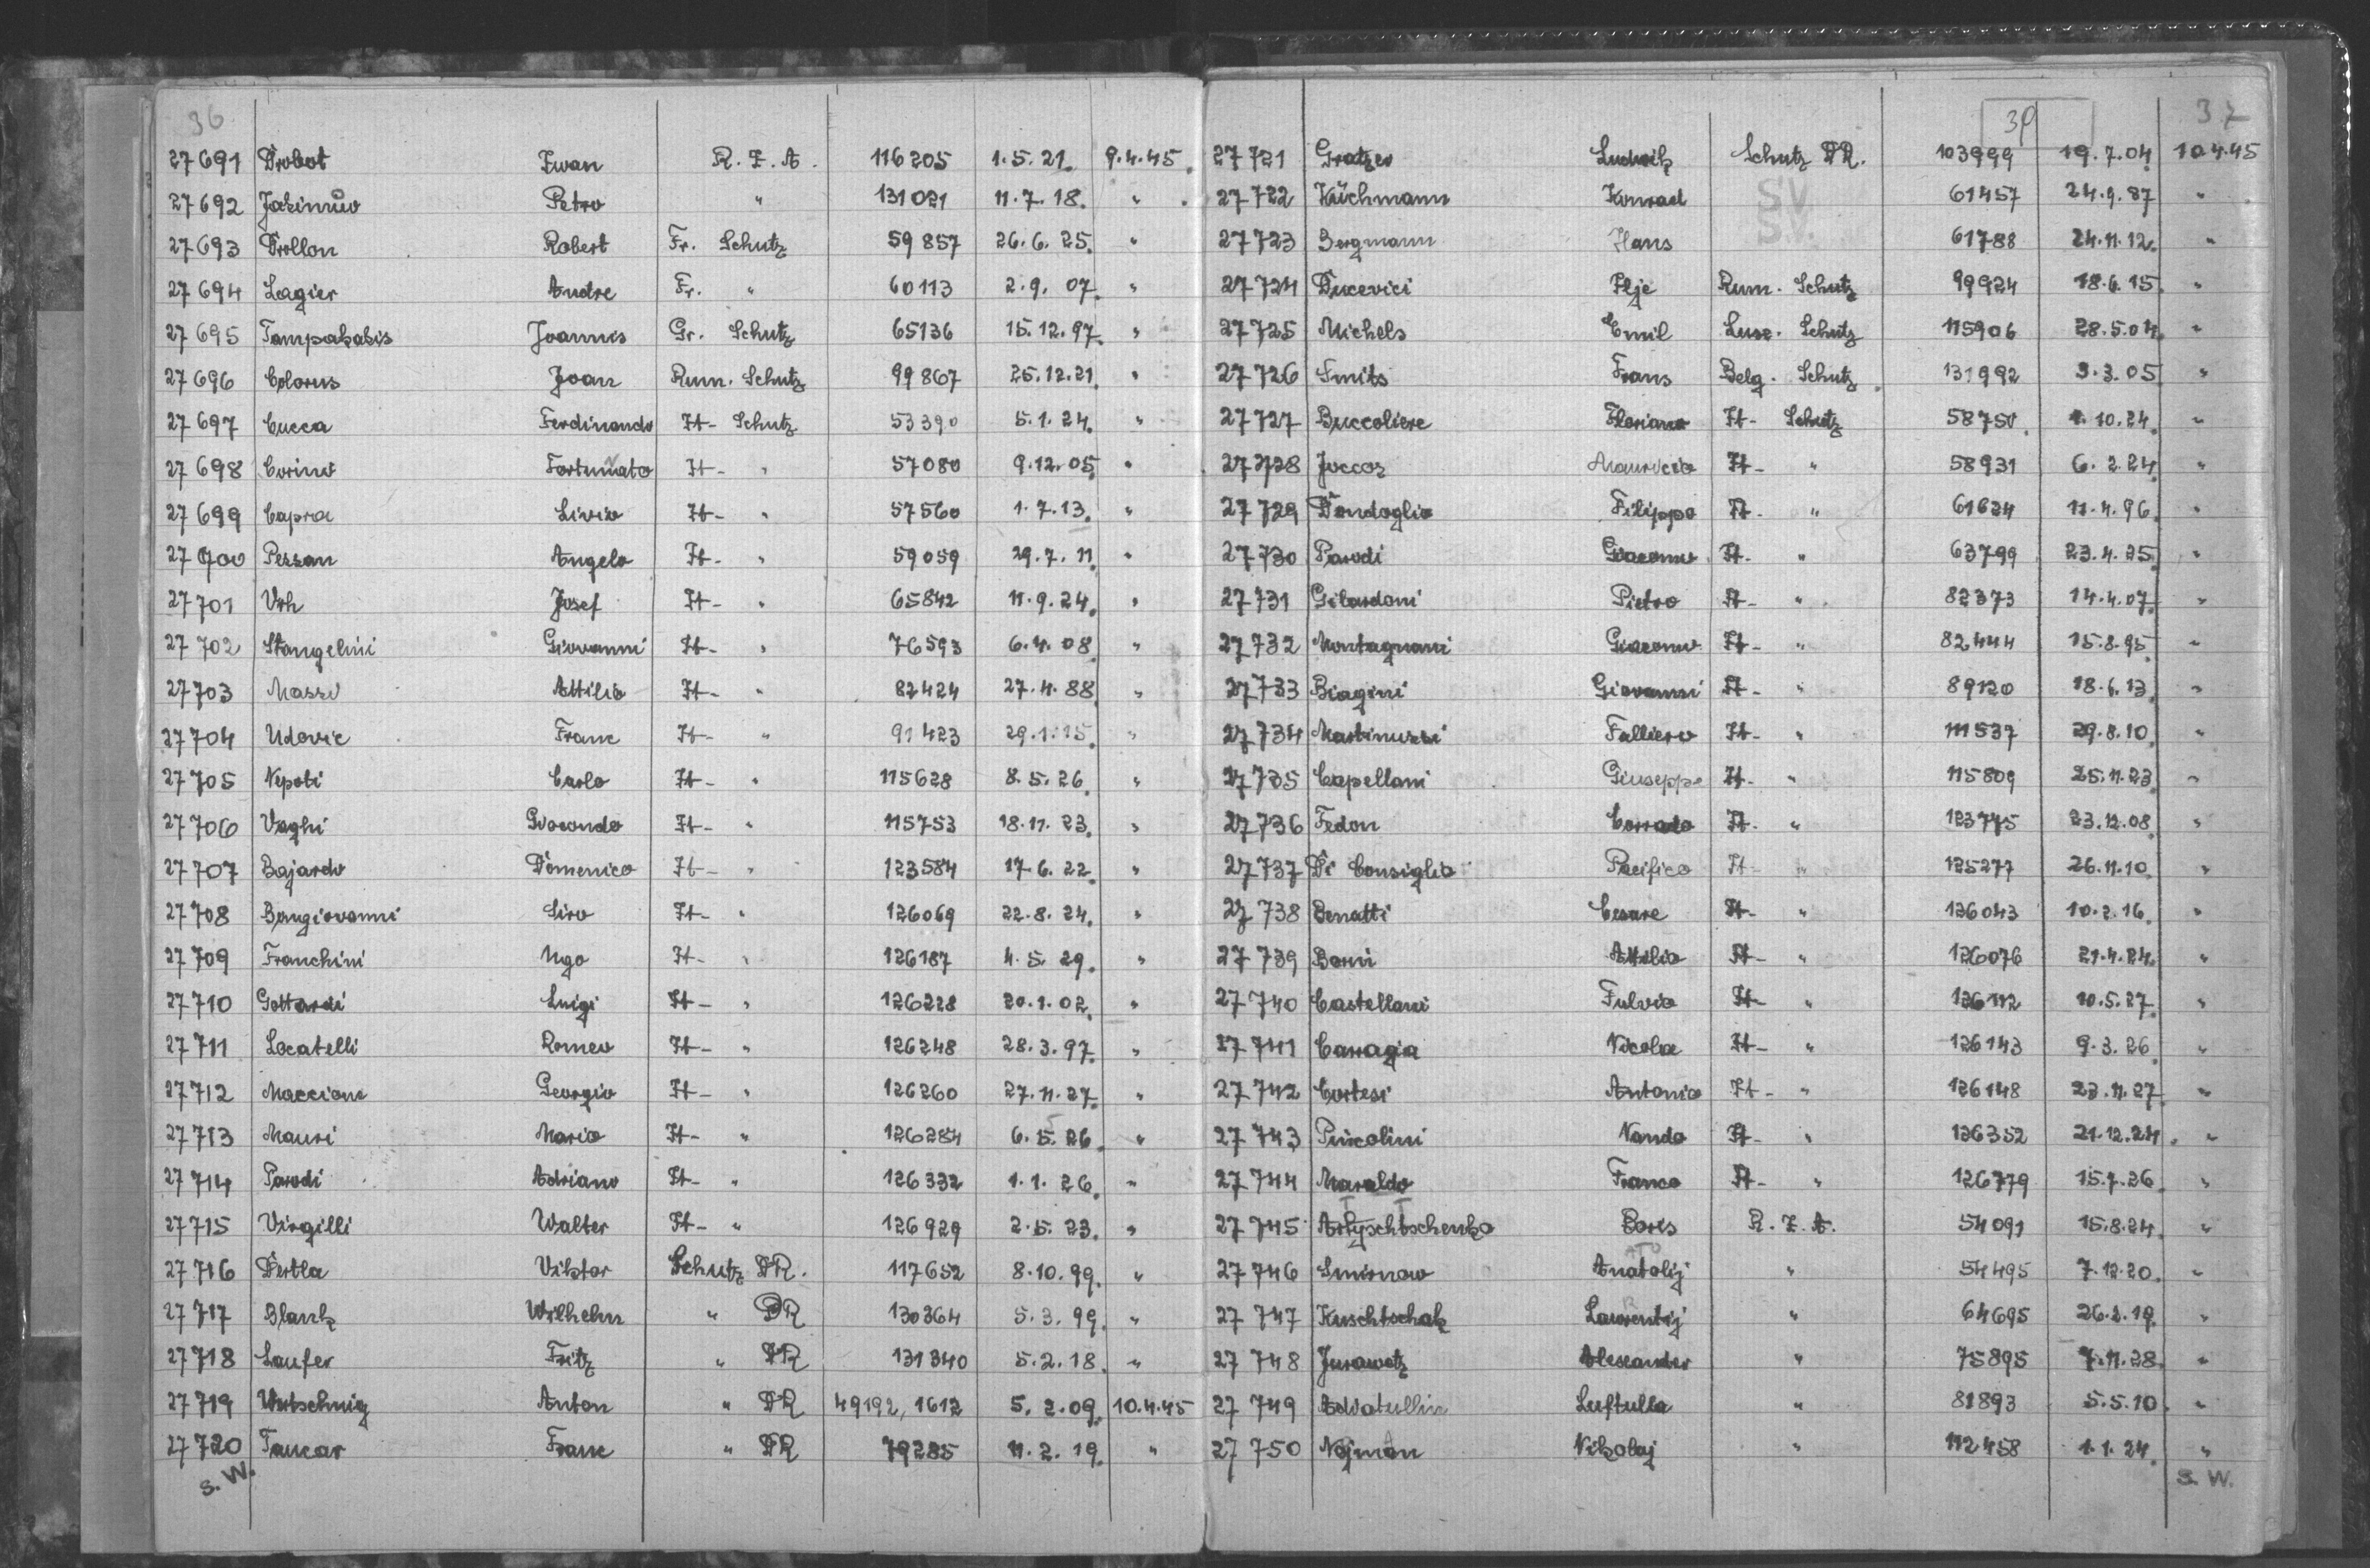 36
27691 Drobot Iwan R. Z. A. 116205 1.5.21. 9.4.45.
27692 Jakimiw Petro " 131021 11.7.18. "
27693 Drollon Robert Fr. Schutz 59857 26.6.25. "
27694 Lagier Andre Fr. " 60113 2.9.07. "
27695 Tampakakis Joannis Gr. Schutz 65136 15.12.97. "
27696 Joan Rum. Schutz 99867 25.12.21. "
27697 Cucca Ferdinando It- Schutz 53390 5.1.24. "
27698 Corino Fortunato It- " 57080 9.12.05. "
27699 Capra Livio It- " 57560 1.7.13. "
27700 Pezzan Angelo It- " 59059 29.7.11. "
27701 Vrh Josef It- " 65842 11.9.24. "
27702 Stangelini Giovanni It- " 76593 6.4.08. "
27703 Massi Attilio It- " 82424 27.4.88. "
27704 Udovic Franc It- " 91423 29.1.15. "
27705 Nepoti Carlo It- " 115628 8.5.26. "
27706 Vaghi Giocondo It- " 115753 18.11.23. "
27707 Bajardo Domenico It- " 123584 17.6.22. "
27708 Bongiovanni Siro It- " 126069 22.8.24. "
27709 Franchini Ugo It- " 126187 4.5.29. "
27710 Gottardi Luigi It- " 126228 20.1.02. "
27711 Locatelli Romeo It- " 126248 28.3.97. "
27712 Maccione Georgio It- " 126260 27.11.27. "
27713 Mauri Mario It- " 126284 6.5.26. "
27714 Parodi Adriano It- " 126332 1.1.26. "
27715 Virgilli Walter It- " 126929 2.5.23. "
27716 Dertla Viktor Schutz DR. 117652 8.10.99. "
27717 Blank Wilhelm " DR 130364 5.3.99. "
27718 Laufer Fritz " DR 131340 5.2.18. "
27719 Anton " DR 49192, 1612 5.2.09. 10.4.45
27720 Taucar Franc " DR 79285 11.2.19. "
S. W.
37
27721 Gratzer Ludwik Schutz DR. 103999 19.7.04. 10.4.45
27722 Küchmann Konrad SV 61457 24.9.87 "
27723 Bergmann Hans S.V. 61788 24.11.12. "
27724 Ducevici Ilje Rum. Schutz 99924 18.6.15. "
27725 Michels Emil Lux. Schutz 115906 28.5.04. "
27726 Smits Frans Belg. Schutz 131992 3.3.05 "
27727 Buccoliere Floriano It- Schutz 58750 1.10.24. "
27728 Joccoz Mauricio It- " 58931 6.2.24. "
27729 Dondoglio Filippo It- " 61624 11.4.96. "
27730 Parodi Giacomo It- " 63799 23.4.25. "
27731 Gilardoni Pietro It- " 82373 14.4.07. "
27732 Montagnani Giacomo It- " 82444 15.8.95. "
27733 Biagini Giovanni It- " 89120 18.6.13. "
27734 Martinuzzi Falliero It- " 111537 29.8.10. "
27735 Capellani Giuseppe It- " 115809 25.11.23. "
27736 Fedon Corrado It- " 123775 23.12.08. "
27737 Di Consiglio Pacifico It- " 125277 26.11.10. "
27738 Benatti Cesare It- " 126043 10.2.16. "
27739 Borni Attilio It- " 126076 21.4.24. "
27740 Castellani Fulvio It- " 126112 10.5.27. "
27741 Carragia Nicola It- " 126143 9.3.26. "
27742 Cortesi Antonio It- " 126148 23.11.27. "
27743 Pincolini Nando It- " 126352 21.12.24. "
27744 Maraldo Franco It- " 126779 15.7.26. "
27745 Artyschtschenko Boris R. Z. A. 54091 15.8.24. "
27746 Smirnow Anatolij " 54495 7.12.20. "
27747 Kuschtschak Lawrentij " 64695 26.2.19. "
27748 Jurawetz Alexander " 75895 7.11.28. "
27749 Adiatullin Luftulla " 81893 5.5.10. "
27750 Najman Nikolaj " 112458 1.1.24. "
S. W.